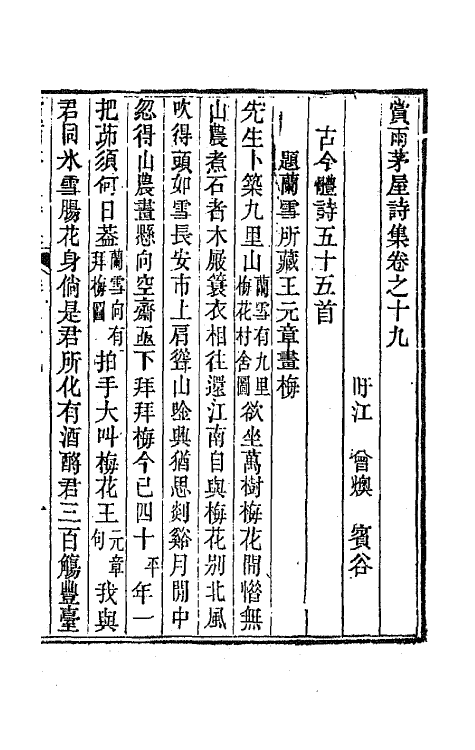 賞雨茅屋詩集卷之十九
盱江　曾燠　賓谷
古今體詩五十五首
題蘭雪所藏王元章畫梅
先生卜築九里山蘭雪有九里梅花村舍圖欲坐萬樹梅花間慴無
山農煮石者木屐蓑衣相往還江南自與梅花别北風
吹得頭如雪長安市上肩聳山吟興猶思剡谿月閒中
忽得山農畫懸向空齋亟下拜拜梅今已四十平年一
把茆須何日葢蘭雪向有拜梅圖拍手大叫梅花王元章句我與
君同氷雪腸花身倘是君所化有酒酹君三百觴豐臺